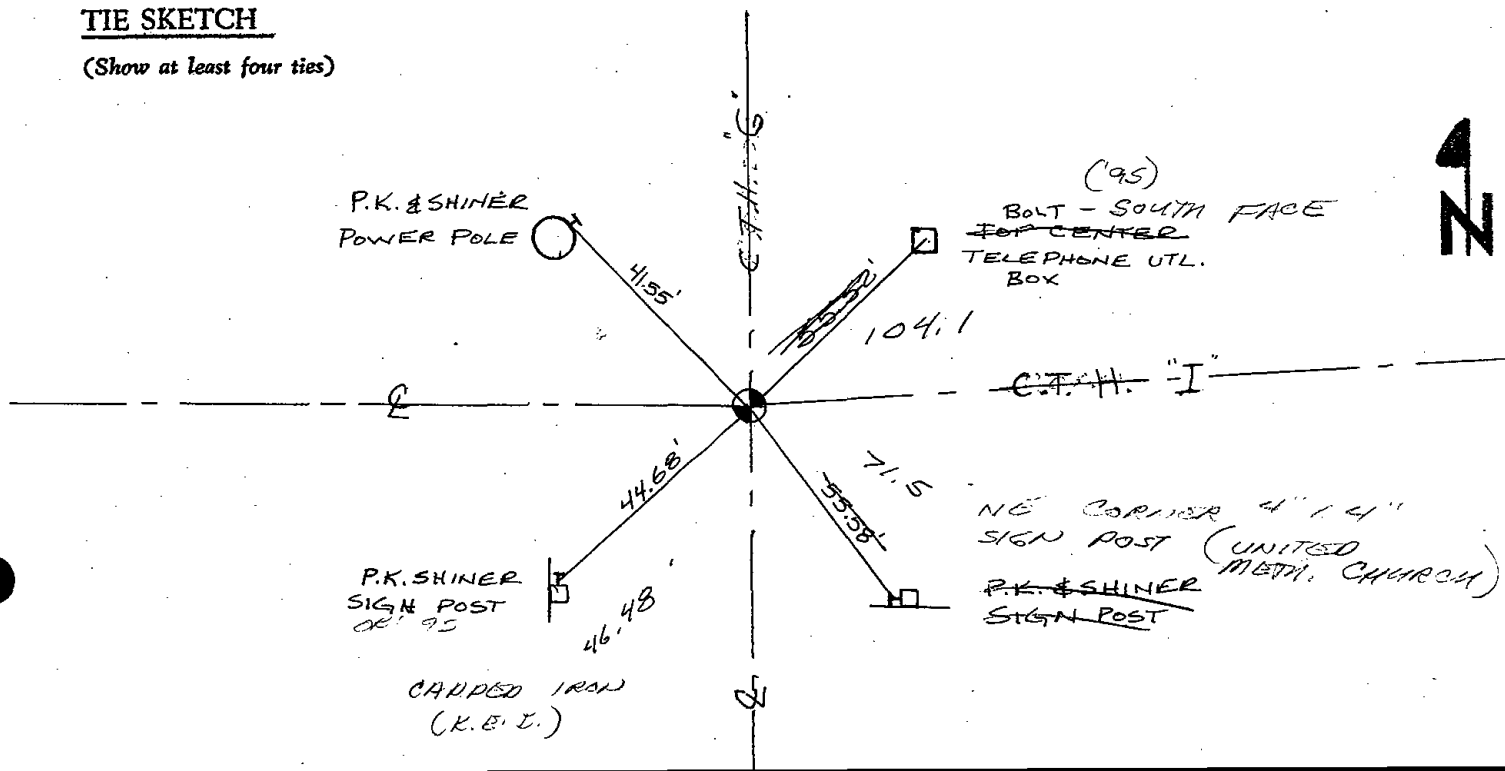 TIE SKETCH
(Show at least four ties)
C.T.H. "G"
P.K. & SHINER
POWER POLE
41.55'
('95)
BOLT - SOUTH FACE
TOP CENTER
TELEPHONE UTL.
BOX
N
104.1
C.T.H. "I"
44.68'
55.58'
71.5
NE CORNER 4" x 4"
SIGN POST (UNITED
METH. CHURCH)
P.K. & SHINER
SIGN POST
P.K. SHINER
SIGN POST
OK '95
46.48'
CAPPED IRON
(K.E.I.)